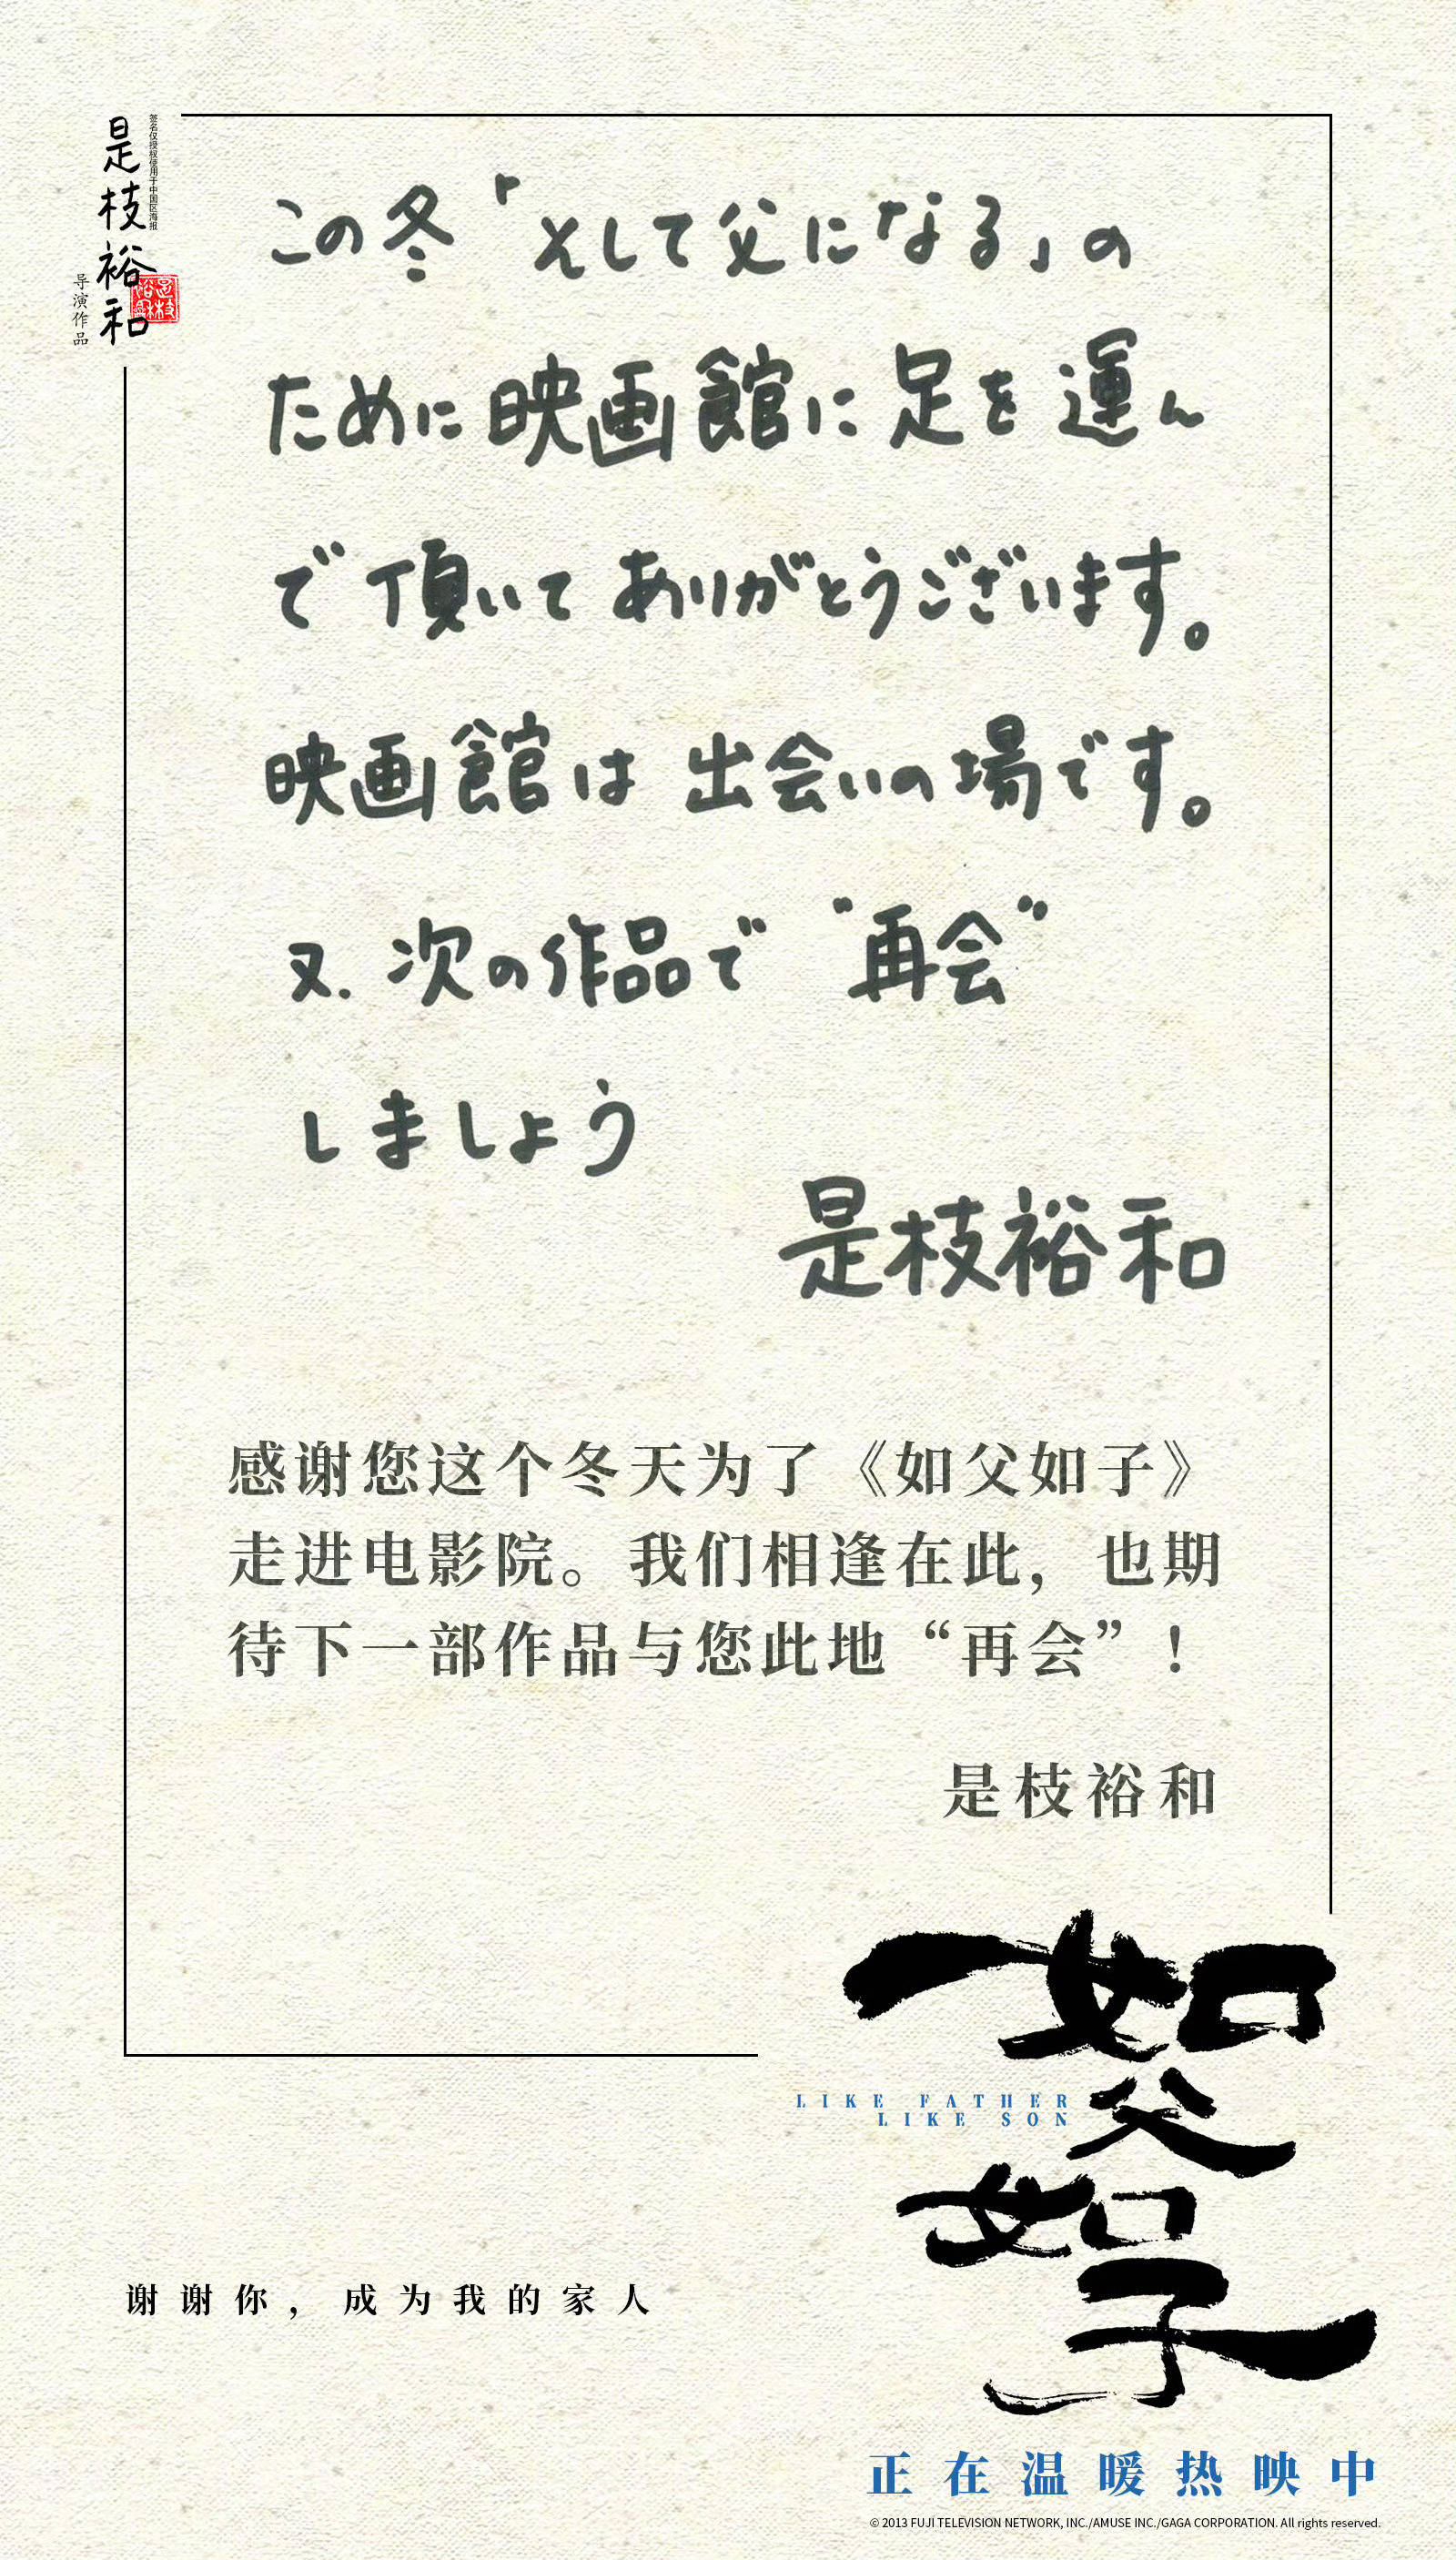 是枝裕和
签名仅授权使用于中国区海报
导演作品
この冬「そして父になる」の
ために映画館に足を運ん
で頂いてありがとうございます。
映画館は出会いの場です。
又.次の作品で“再会”
しましょう
是枝裕和
感谢您这个冬天为了《如父如子》
走进电影院。我们相逢在此，也期
待下一部作品与您此地“再会”！
是枝裕和
如父如子
LIKE FATHER
LIKE SON
谢谢你，成为我的家人
正在温暖热映中
© 2013 FUJI TELEVISION NETWORK, INC./AMUSE INC./GAGA CORPORATION. All rights reserved.